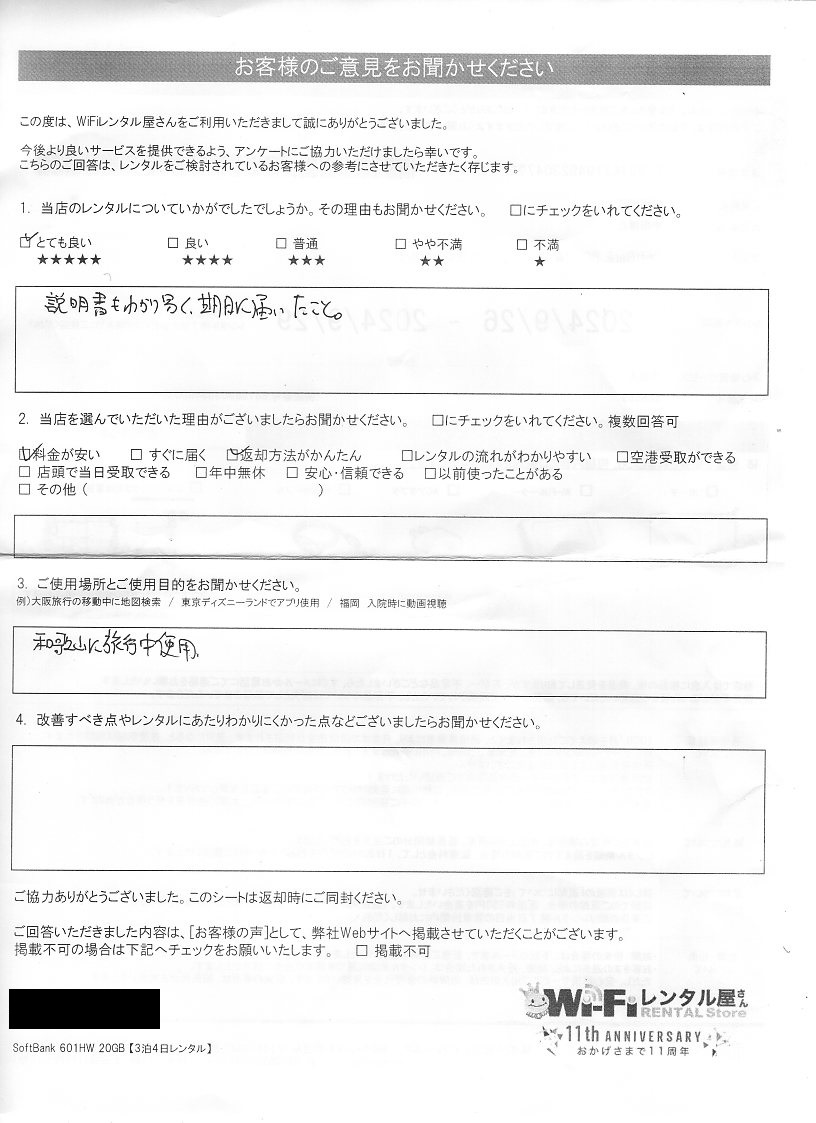 お客様のご意見をお聞かせください
この度は、WiFiレンタル屋さんをご利用いただきまして誠にありがとうございました。
今後より良いサービスを提供できるよう、アンケートにご協力いただけましたら幸いです。
こちらのご回答は、レンタルをご検討されているお客様への参考にさせていただきたく存じます。
1. 当店のレンタルについていかがでしたでしょうか。その理由もお聞かせください。 □にチェックをいれてください。
☑とても良い □ 良い □ 普通 □ やや不満 □ 不満
★★★★★ ★★★★ ★★★ ★★ ★
説明書もわかり易く、期日に届いたこと。
2. 当店を選んでいただいた理由がございましたらお聞かせください。 □にチェックをいれてください。複数回答可
☑料金が安い □ すぐに届く ☑返却方法がかんたん □レンタルの流れがわかりやすい □空港受取ができる
□ 店頭で当日受取できる □年中無休 □ 安心・信頼できる □以前使ったことがある
□ その他 ( )
3. ご使用場所とご使用目的をお聞かせください。
例)大阪旅行の移動中に地図検索 / 東京ディズニーランドでアプリ使用 / 福岡 入院時に動画視聴
和歌山に旅行中使用、
4. 改善すべき点やレンタルにあたりわかりにくかった点などございましたらお聞かせください。
ご協力ありがとうございました。このシートは返却時にご同封ください。
ご回答いただきました内容は、[お客様の声]として、弊社Webサイトへ掲載させていただくことがございます。
掲載不可の場合は下記へチェックをお願いいたします。 □ 掲載不可
Wi-Fiレンタル屋さん
RENTAL Store
11th ANNIVERSARY
おかげさまで11周年
SoftBank 601HW 20GB【3泊4日レンタル】